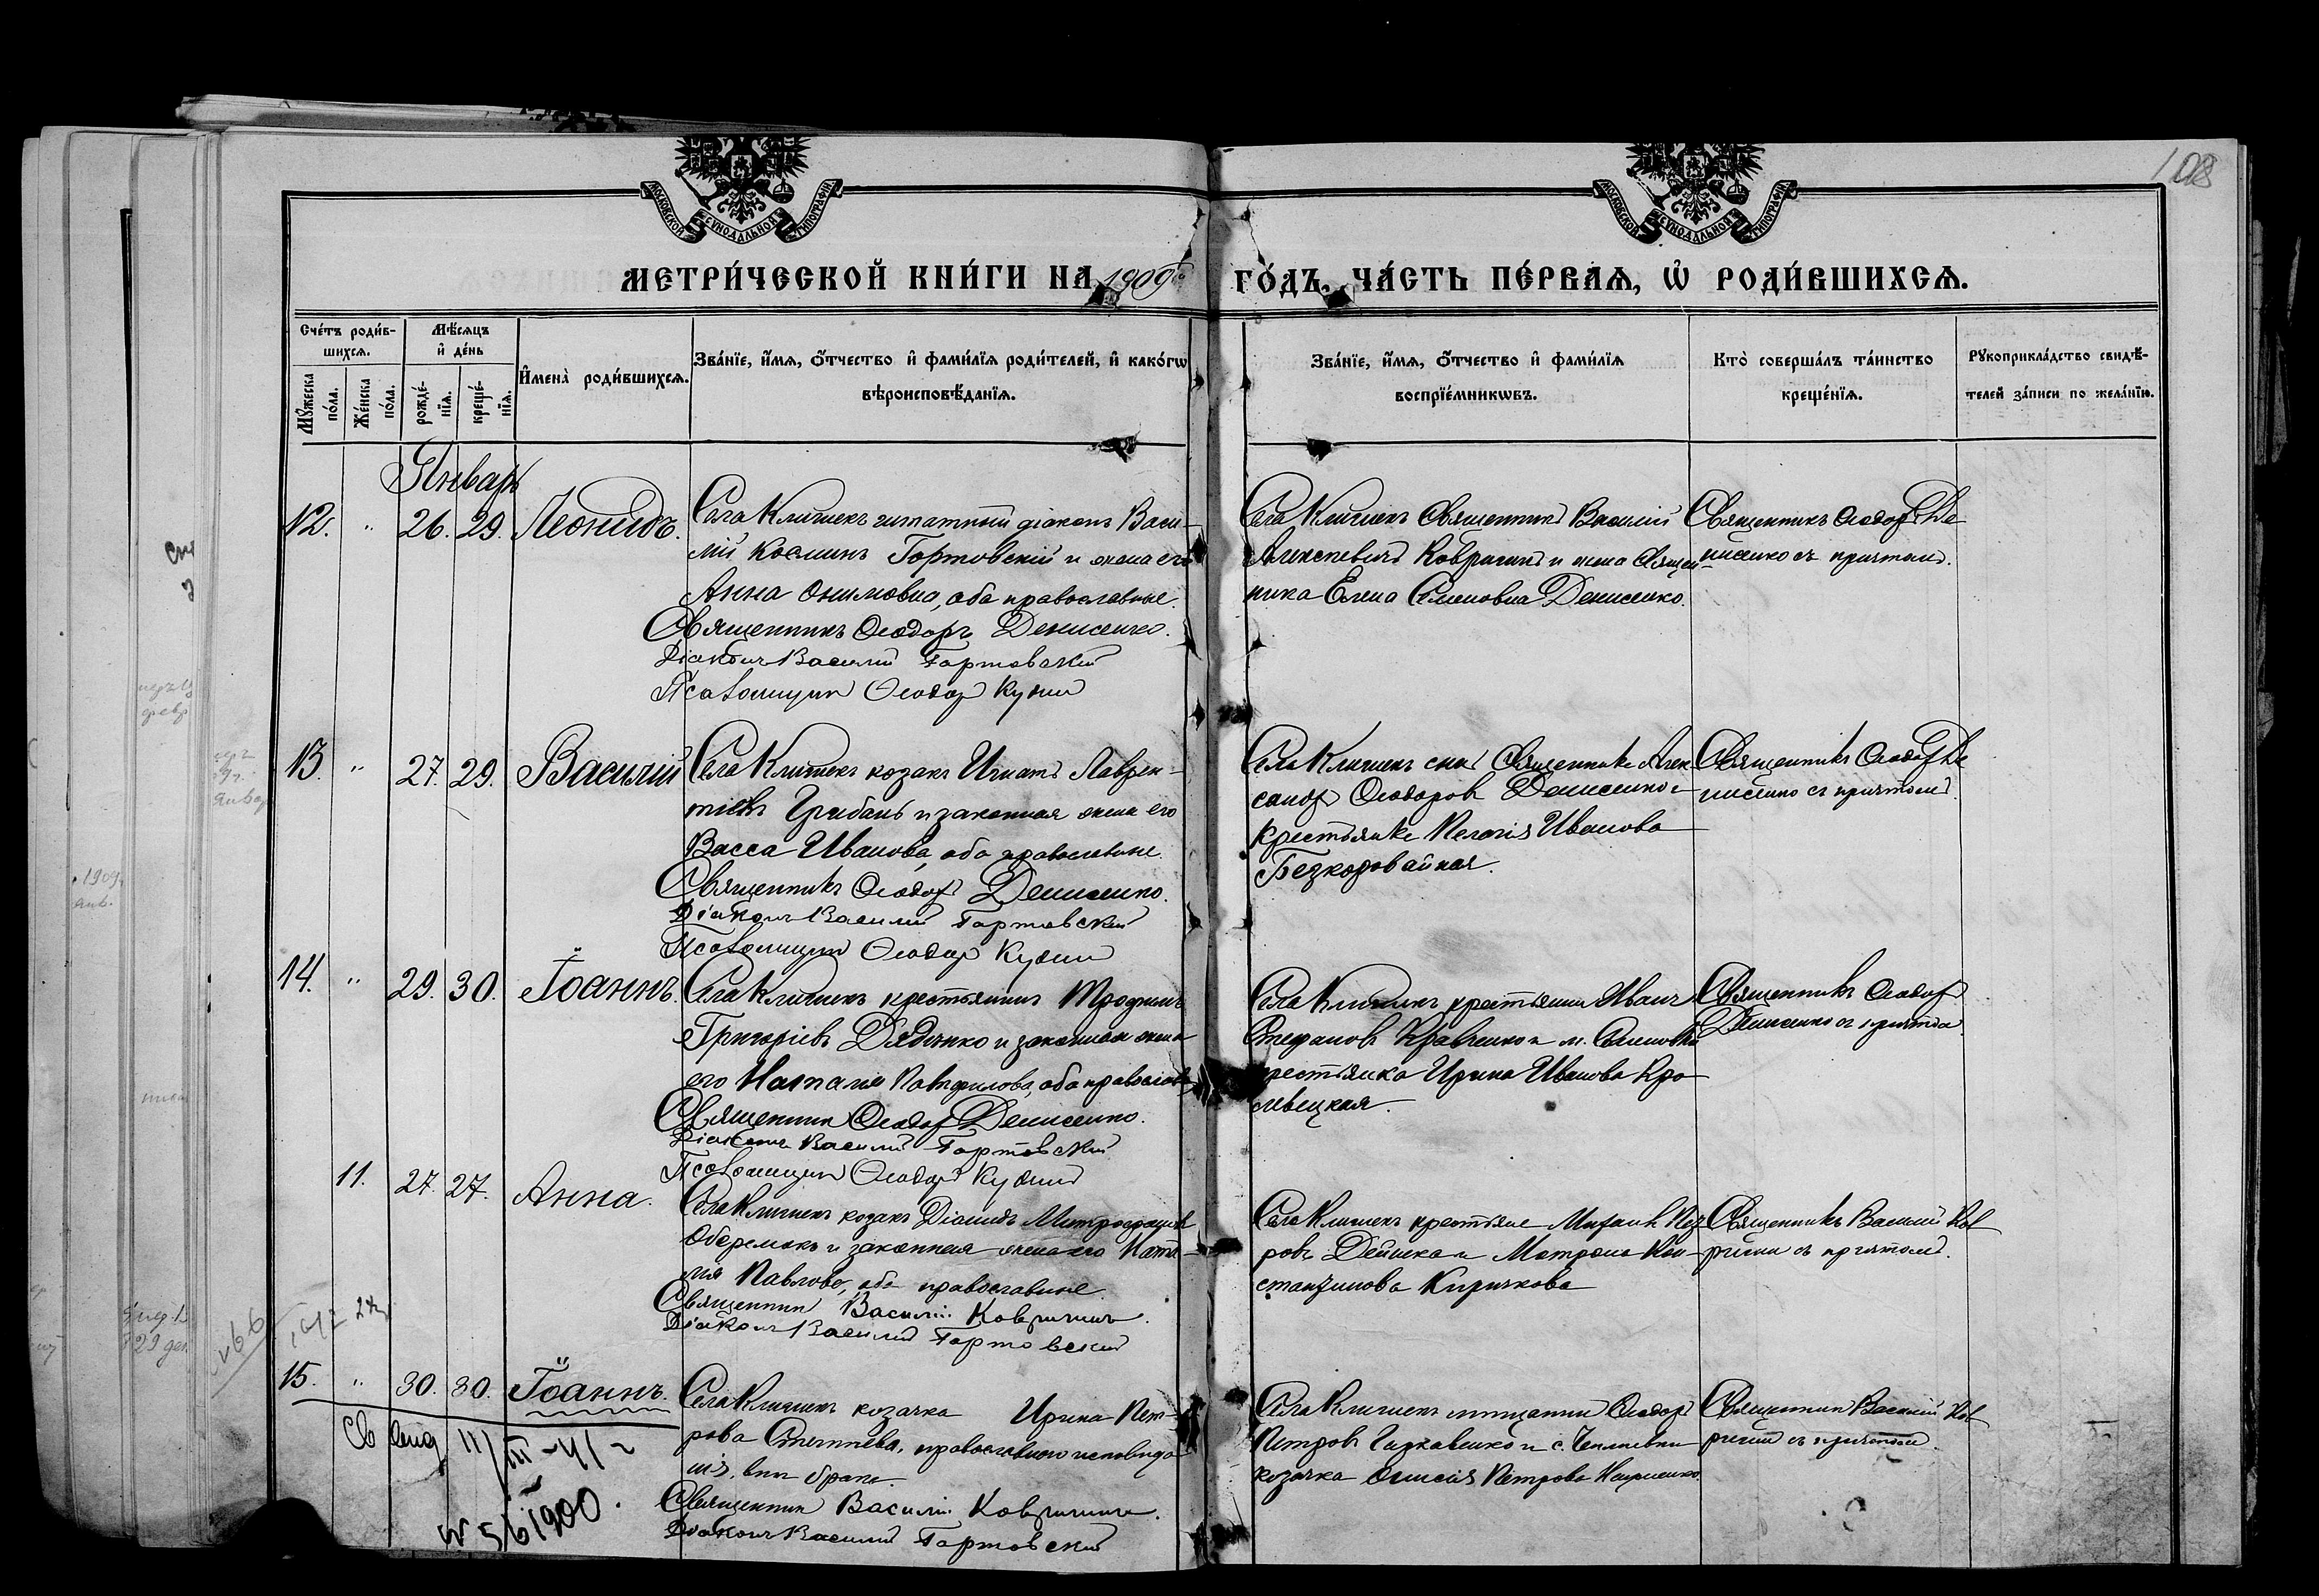 108
МОСКОВСКОЙ СѴНОДАЛЬНОЙ ТИПОГРАФІИ
МОСКОВСКОЙ СѴНОДАЛЬНОЙ ТИПОГРАФІИ
МЕТРИ́ЧЕСКОЙ КНИ́ГИ НА 1909
ГО́ДЪ, ЧА́СТЬ ПЕ́РВАѦ, Ѡ҆ РОДИ́ВШИХСѦ.
Сче́тъ роди́в-
шихсѧ.
Мꙋ́жеска по́ла.
Же́нска по́ла.
Мѣ́сѧцъ
и҆ де́нь
рожде́-
нїѧ.
креще́-
нїѧ.
И҆мена̀ роди́вшихсѧ.
Зва́нїе, и҆́мѧ, ѻ҆́тчество и҆ фами́лїѧ роди́телей, и҆ како́гѡ
вѣроисповѣ́данїѧ.
Зва́нїе, и҆́мѧ, ѻ҆́тчество и҆ фами́лїѧ
воспрїе́мникѡвъ.
Кто̀ соверша́лъ та́инство
креще́нїѧ.
Рꙋкоприкла́дство свидѣ́-
телей за́писи по жела́нїю.
Январь
12. " 26. 29. Леонидъ.
Села Клишекъ штатный діаконъ Васи-
лій Косминъ Гортовскій и жена его
Анна Онимовна, оба православные.
Священникъ Ѳеодоръ Денисенко.
Діаконъ Василий Гортовский
Псаломщик Ѳеодор Кудин
Села Клишекъ Священникъ Василій
Алексѣевичъ Ковригинъ и жена Священ
ника Елена Семеновна Денисенко.
Священникъ Ѳеодоръ Де
нисенко съ причтомъ.
13. " 27. 29. Василій
Села Клишекъ козакъ Игнатъ Лаврен-
тіевъ Грибанъ и законная жена его
Васса Иванова, оба православные.
Священникъ Ѳеодоръ Денисенко.
Діаконъ Василий Гортовский
Псаломщик Ѳеодор Кудин
Села Клишекъ сынъ Священника Алек
сандръ Ѳеодоровъ Денисенко и
крестьянка Пелагія Иванова
Безкоровайная.
Священникъ Ѳеодоръ Де
нисенко съ причтомъ.
14. " 29. 30. Іоаннъ.
Села Клишекъ крестьянинъ
Григоріевъ Дядченко и законная жена
его Наталія Памфилова, оба православ
Священник Ѳеодоръ Денисенко.
Діаконъ Василий Гортовский
Псаломщик Ѳеодор Кудин
Села Клишекъ крестьянин Иванъ
Стефановъ Кравченко и м. Семеновки
крестьянка Ирина Иванова Кро
левецкая.
Священникъ Ѳеодоръ
Денисенко съ причтом
11. 27. 27. Анна.
Села Клишекъ козакъ Діомидъ Митрофановъ
Оберемокъ и законная жена его Ната-
лія Павлова, оба православные.
Священник Василій Ковригинъ.
Діаконъ Василий Гортовский
Села Клишекъ крестьяне Пет
ровъ Дейнека и Матрона Кон-
стантинова Киричкова
Священникъ Василій Ков
ригин съ причтомъ.
15. " 30. 30. Іоаннъ.
Села Клишекъ козачка Ирина Пет-
рова, православного исповѣда
нія, внѣ брака
Священник Василій Ковригинъ.
Діаконъ Василий Гортовский
Села Клишекъ мѣщанин Ѳеодоръ
Петровъ Гиркавенко и с.
козачка Анисія Петрова
Священник Василій Ков
ригин съ причтом.